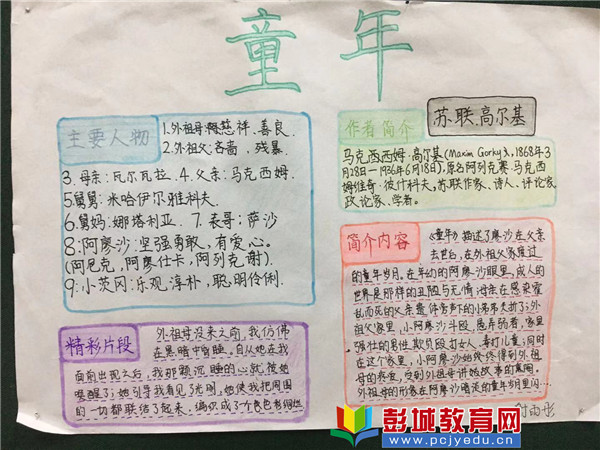 童年
主要人物
1.外祖母:慈祥、善良.
2.外祖父:吝啬、残暴.
3.母亲:瓦尔瓦拉.4.父亲:马克西姆.
5舅舅:米哈伊尔.雅科夫.
6舅妈:娜塔利亚.7.表哥:萨沙
8:阿廖沙:坚强勇敢,有爱心。
(阿厄克,阿廖仕卡,阿列克谢).
9:小茨冈:乐观,淳朴,聪明伶俐.
作者简介
苏联.高尔基
马克西西姆·高尔基(Maxim Gorky),1868年3
月28日—1936年6月18日),原名阿列克赛·马克西
姆维奇·彼什科夫,苏联作家、诗人、评论家
政论家、学者。
简介内容
《童年》描述了廖沙在父亲
去世后,在外祖父家度过
的童年岁月.在年幼的阿廖沙眼里,成人的
世界是那样的丑陋与无情.母亲在感染霍
乱而死的父亲遗体旁声下的小弟弟夭折了;外
祖父家里,小阿廖沙斗殴,悬弃弱者,家里
强壮的男性欺负殴打女人、毒打儿童;同时
在这个家里,小阿廖沙始终终得到外祖
母的疼爱,受到外祖母讲她故事的熏陶.
外祖母的形象在阿廖沙暗淡的童年岁月里闪…
精彩片段
外祖母没来之前,我仿佛
在黑暗中昏睡。自从她在我
面前出现之后,我那颗沉睡的心就被她
唤醒了;她引导我看见了光明,她使我把周围
的一切都联结了起来.编织成了个色色
付雨彤
彭城教育网
www.pcjyedu.cn